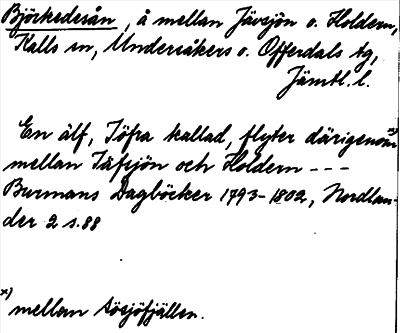 Björkedesån, å mellan Jävsjön o. Holdern,
Kalls sn, Undersåkers o. Offerdals tg,
Jämtl. l.
En älf, Töfra kallad, flyter därigenom x)
mellan Täfsjön och Holdern ---
Burmans Dagböcker 1793-1802, Nordlan-
der 2 s. 88
x)
mellan Sösjöfjällen.